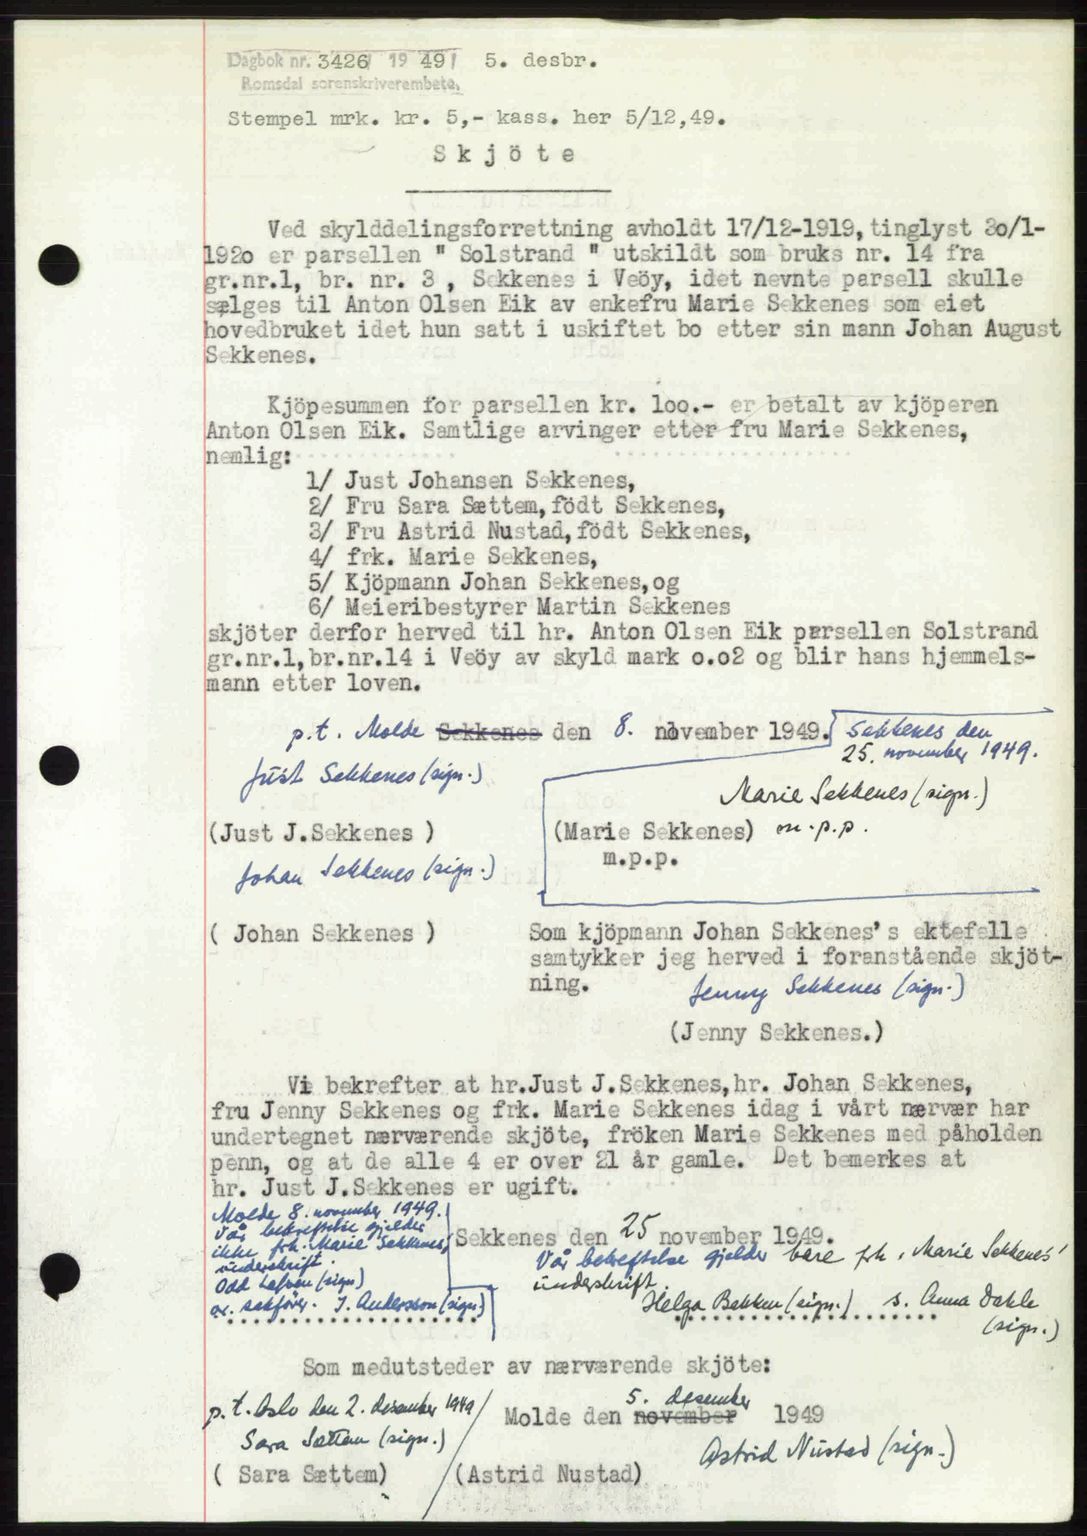 Dagbok nr. 3426 19 49 5. desbr.
Romsdal sorenskriverembete.
Stempel mrk. kr. 5,- kass. her 5/12,49.
S k j ö t e
Ved skylddelingsforrettning avholdt 17/12-1919, tinglyst 3o/1-
192o er parsellen " Solstrand " utskildt som bruks nr. 14 fra
gr.nr.1, br. nr. 3 , Sekkenes i Veöy, idet nevnte parsell skulle
sælges til Anton Olsen Eik av enkefru Marie Sekkenes som eiet
hovedbruket idet hun satt i uskiftet bo etter sin mann Johan August
Sekkenes.
Kjöpesummen for parsellen kr. 1oo.- er betalt av kjöperen
Anton Olsen Eik. Samtlige arvinger etter fru Marie Sekkenes,
nemlig:
1/ Just Johansen Sekkenes,
2/ Fru Sara Sættem, födt Sekkenes,
3/ Fru Astrid Nustad, födt Sekkenes,
4/ frk. Marie Sekkenes,
5/ Kjöpmann Johan Sekkenes, og
6/ Meieribestyrer Martin Sekkenes
skjöter derfor herved til hr. Anton Olsen Eik parsellen Solstrand
gr.nr.1,br.nr.14 i Veöy av skyld mark o.o2 og blir hans hjemmels-
mann etter loven.
p.t. Molde Sekkenes den 8. november 1949. Sekkenes den
25. november 1949.
Just Sekkenes (sign.)
Marie Sekkenes (sign.)
(Just J.Sekkenes ) (Marie Sekkenes) m.p.p.
m.p.p.
Johan Sekkenes (sign.)
( Johan Sekkenes ) Som kjöpmann Johan Sekkenes's ektefelle
samtykker jeg herved i foranstående skjöt-
ning.
Jenny Sekkenes (sign.)
(Jenny Sekkenes.)
Vi bekrefter at hr.Just J.Sekkenes,hr. Johan Sekkenes,
fru Jenny Sekkenes og frk. Marie Sekkenes idag i vårt nærvær har
undertegnet nærværende skjöte, fröken Marie Sekkenes med påholden
penn, og at de alle 4 er over 21 år gamle. Det bemerkes at
hr. Just J.Sekkenes er ugift.
Molde 8. november 1949.
Vår bekreftelse gjelder
ikke frk. Marie Sekkenes'
underskrift.
Odd (sign)
J. Andersson (sign.)
Sekkenes den 25 november 1949.
Vår bekreftelse gjelder bare frk. Marie Sekkenes'
underskrift.
Helga Bakken (sign.) s. Anna Dahle
(sign.)
Som medutsteder av nærværende skjöte:
p.t. Oslo den 2. desember 1949
5. desember
Molde den november 1949
Sara Sættem (sign.)
Astrid Nustad (sign.)
( Sara Sættem) (Astrid Nustad)